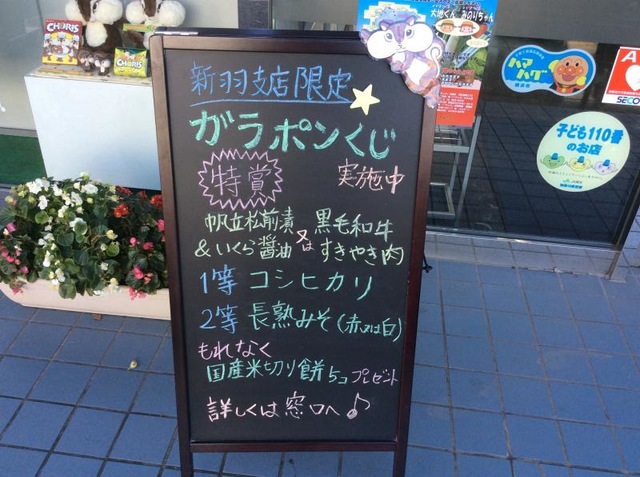 新羽支店限定
ガラポンくじ
特賞
実施中
帆立松前漬 又は 黒毛和牛
&いくら醤油 すきやき肉
1等 コシヒカリ
2等 長熟みそ(赤又は白)
もれなく
国産米切り餅5コプレゼント
詳しくは窓口へ♪
CHORIS
CHORIS
大地くん みのりちゃん
ハマハグ
子ども110番
のお店
SECO